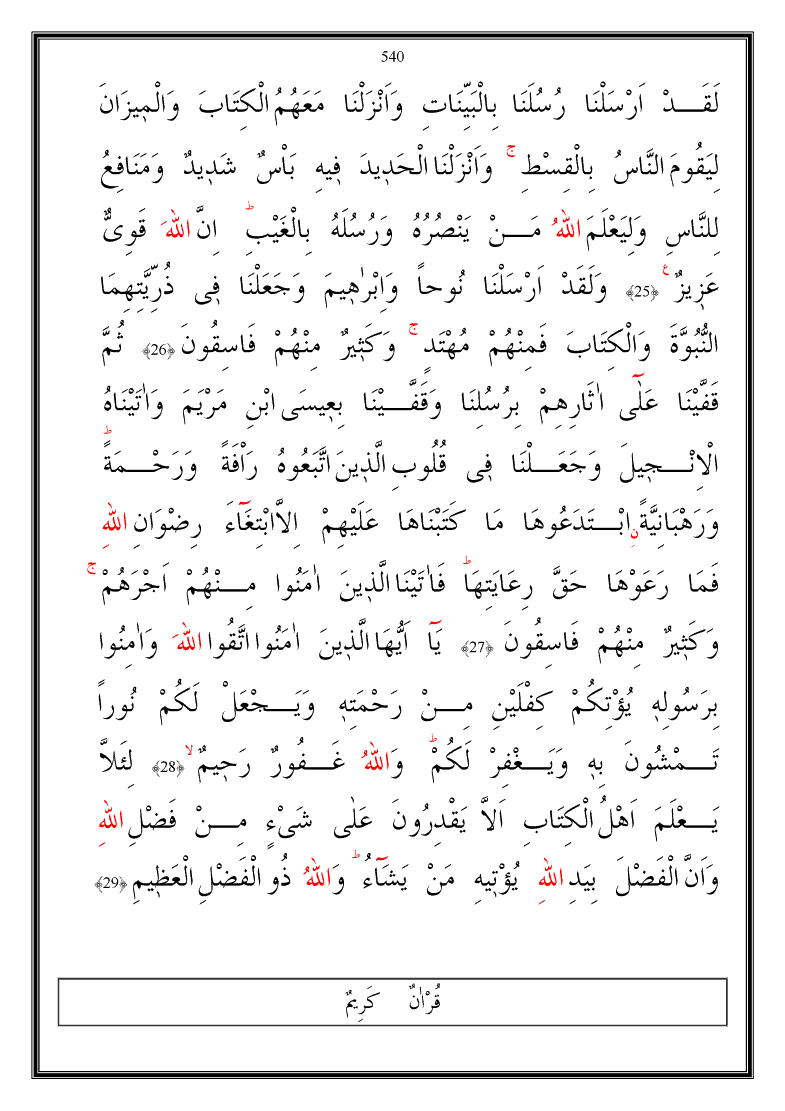 540
لَقَـــدْ اَرْسَلْنَا رُسُلَنَا بِالْبَيِّنَاتِ وَاَنْزَلْنَا مَعَهُمُ الْكِتَابَ وَالْم۪يزَانَ
لِيَقُومَ النَّاسُ بِالْقِسْطِۚ وَاَنْزَلْنَا الْحَد۪يدَ ف۪يهِ بَاْسٌ شَد۪يدٌ وَمَنَافِعُ
لِلنَّاسِ وَلِيَعْلَمَ اللّٰهُ مَـــنْ يَنْصُرُهُ وَرُسُلَهُ بِالْغَيْبِۜ اِنَّ اللّٰهَ قَوِيٌّ
عَز۪يزٌ۟ ﴿25﴾ وَلَقَدْ اَرْسَلْنَا نُوحاً وَاِبْرٰه۪يمَ وَجَعَلْنَا ف۪ى ذُرِّيَّتِهِمَا
النُّبُوَّةَ وَالْكِتَابَ فَمِنْهُمْ مُهْتَدٍۚ وَكَث۪يرٌ مِنْهُمْ فَاسِقُونَ ﴿26﴾ ثُمَّ
قَفَّيْنَا عَلٰٓى اٰثَارِهِمْ بِرُسُلِنَا وَقَفَّـــيْنَا بِع۪يسَى ابْنِ مَرْيَمَ وَاٰتَيْنَاهُ
الْاِنْـــج۪يلَ وَجَعَـــلْنَا ف۪ى قُلُوبِ الَّذ۪ينَ اتَّبَعُوهُ رَاْفَةً وَرَحْـــمَةًۜ
وَرَهْبَانِيَّةًۨ ابْـــتَدَعُوهَا مَا كَتَبْنَاهَا عَلَيْهِمْ اِلاَّ ابْتِغَٓاءَ رِضْوَانِ اللّٰهِ
فَمَا رَعَوْهَا حَقَّ رِعَايَتِهَاۜ فَاٰتَيْنَا الَّذ۪ينَ اٰمَنُوا مِـــنْهُمْ اَجْرَهُمْۚ
وَكَث۪يرٌ مِنْهُمْ فَاسِقُونَ ﴿27﴾ يَٓا اَيُّهَا الَّذ۪ينَ اٰمَنُوا اتَّقُوا اللّٰهَ وَاٰمِنُوا
بِرَسُولِه۪ يُؤْتِكُمْ كِفْلَيْنِ مِـــنْ رَحْمَتِه۪ وَيَـــجْعَلْ لَكُمْ نُوراً
تَـــمْشُونَ بِه۪ وَيَـــغْفِرْ لَكُمْۜ وَاللّٰهُ غَـــفُورٌ رَح۪يمٌۙ ﴿28﴾ لِئَلاَّ
يَـــعْلَمَ اَهْلُ الْكِتَابِ اَلاَّ يَقْدِرُونَ عَلٰى شَىْءٍ مِـــنْ فَضْلِ اللّٰهِ
وَاَنَّ الْفَضْلَ بِيَدِ اللّٰهِ يُؤْت۪يهِ مَنْ يَشَٓاءُۜ وَاللّٰهُ ذُو الْفَضْلِ الْعَظ۪يمِ ﴿29﴾
قُرْاٰنٌ كَرِيمٌ